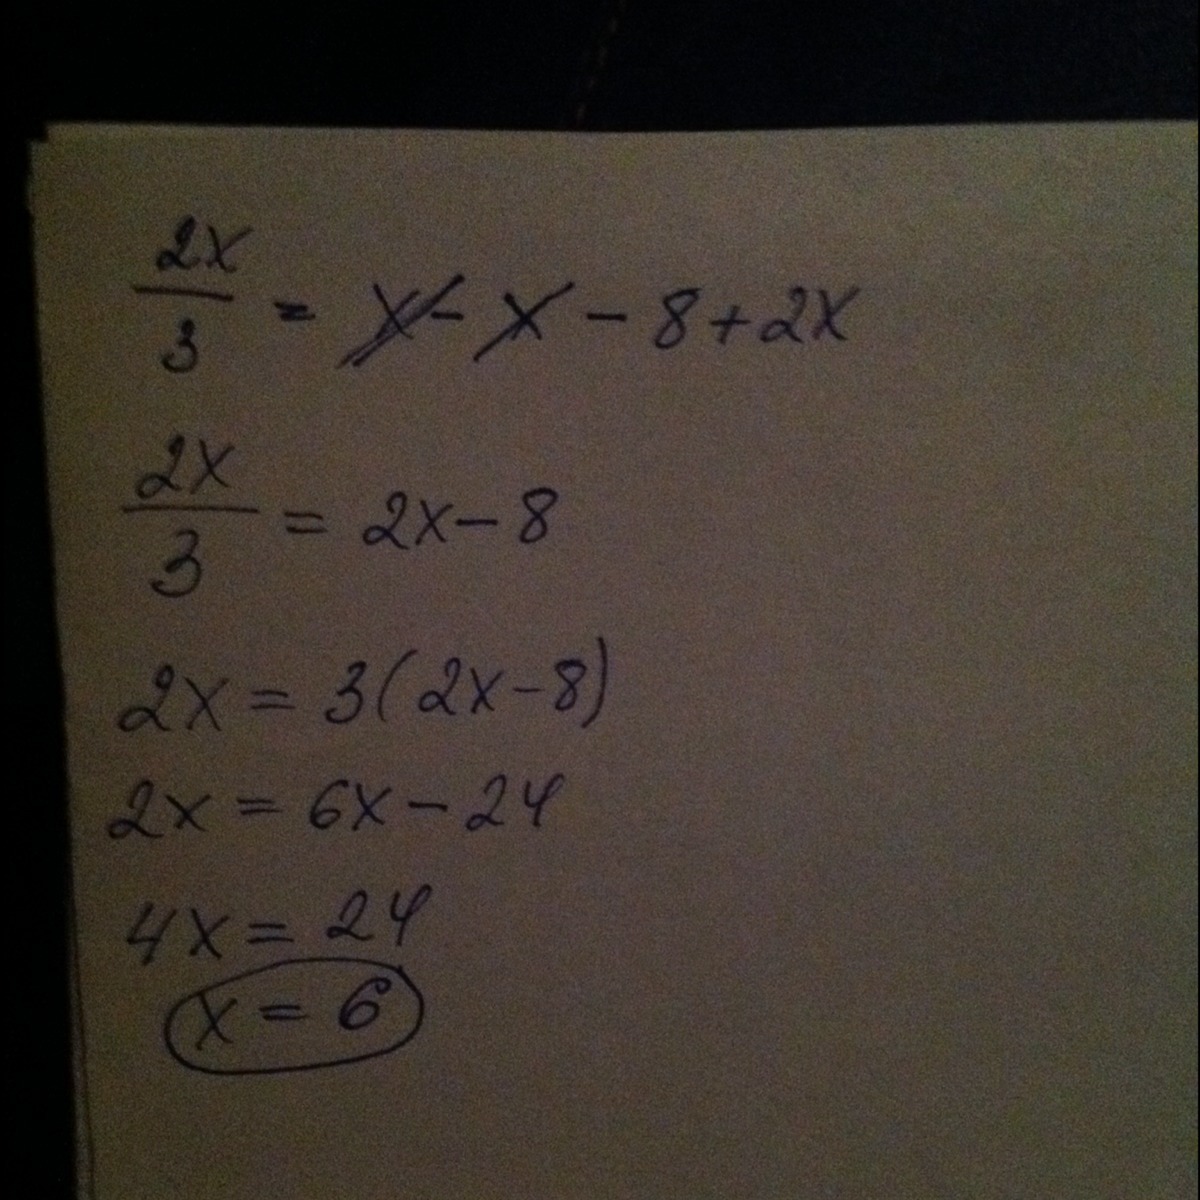 2x/3 = x - x - 8 + 2x
2x/3 = 2x - 8
2x = 3(2x - 8)
2x = 6x - 24
4x = 24
x = 6